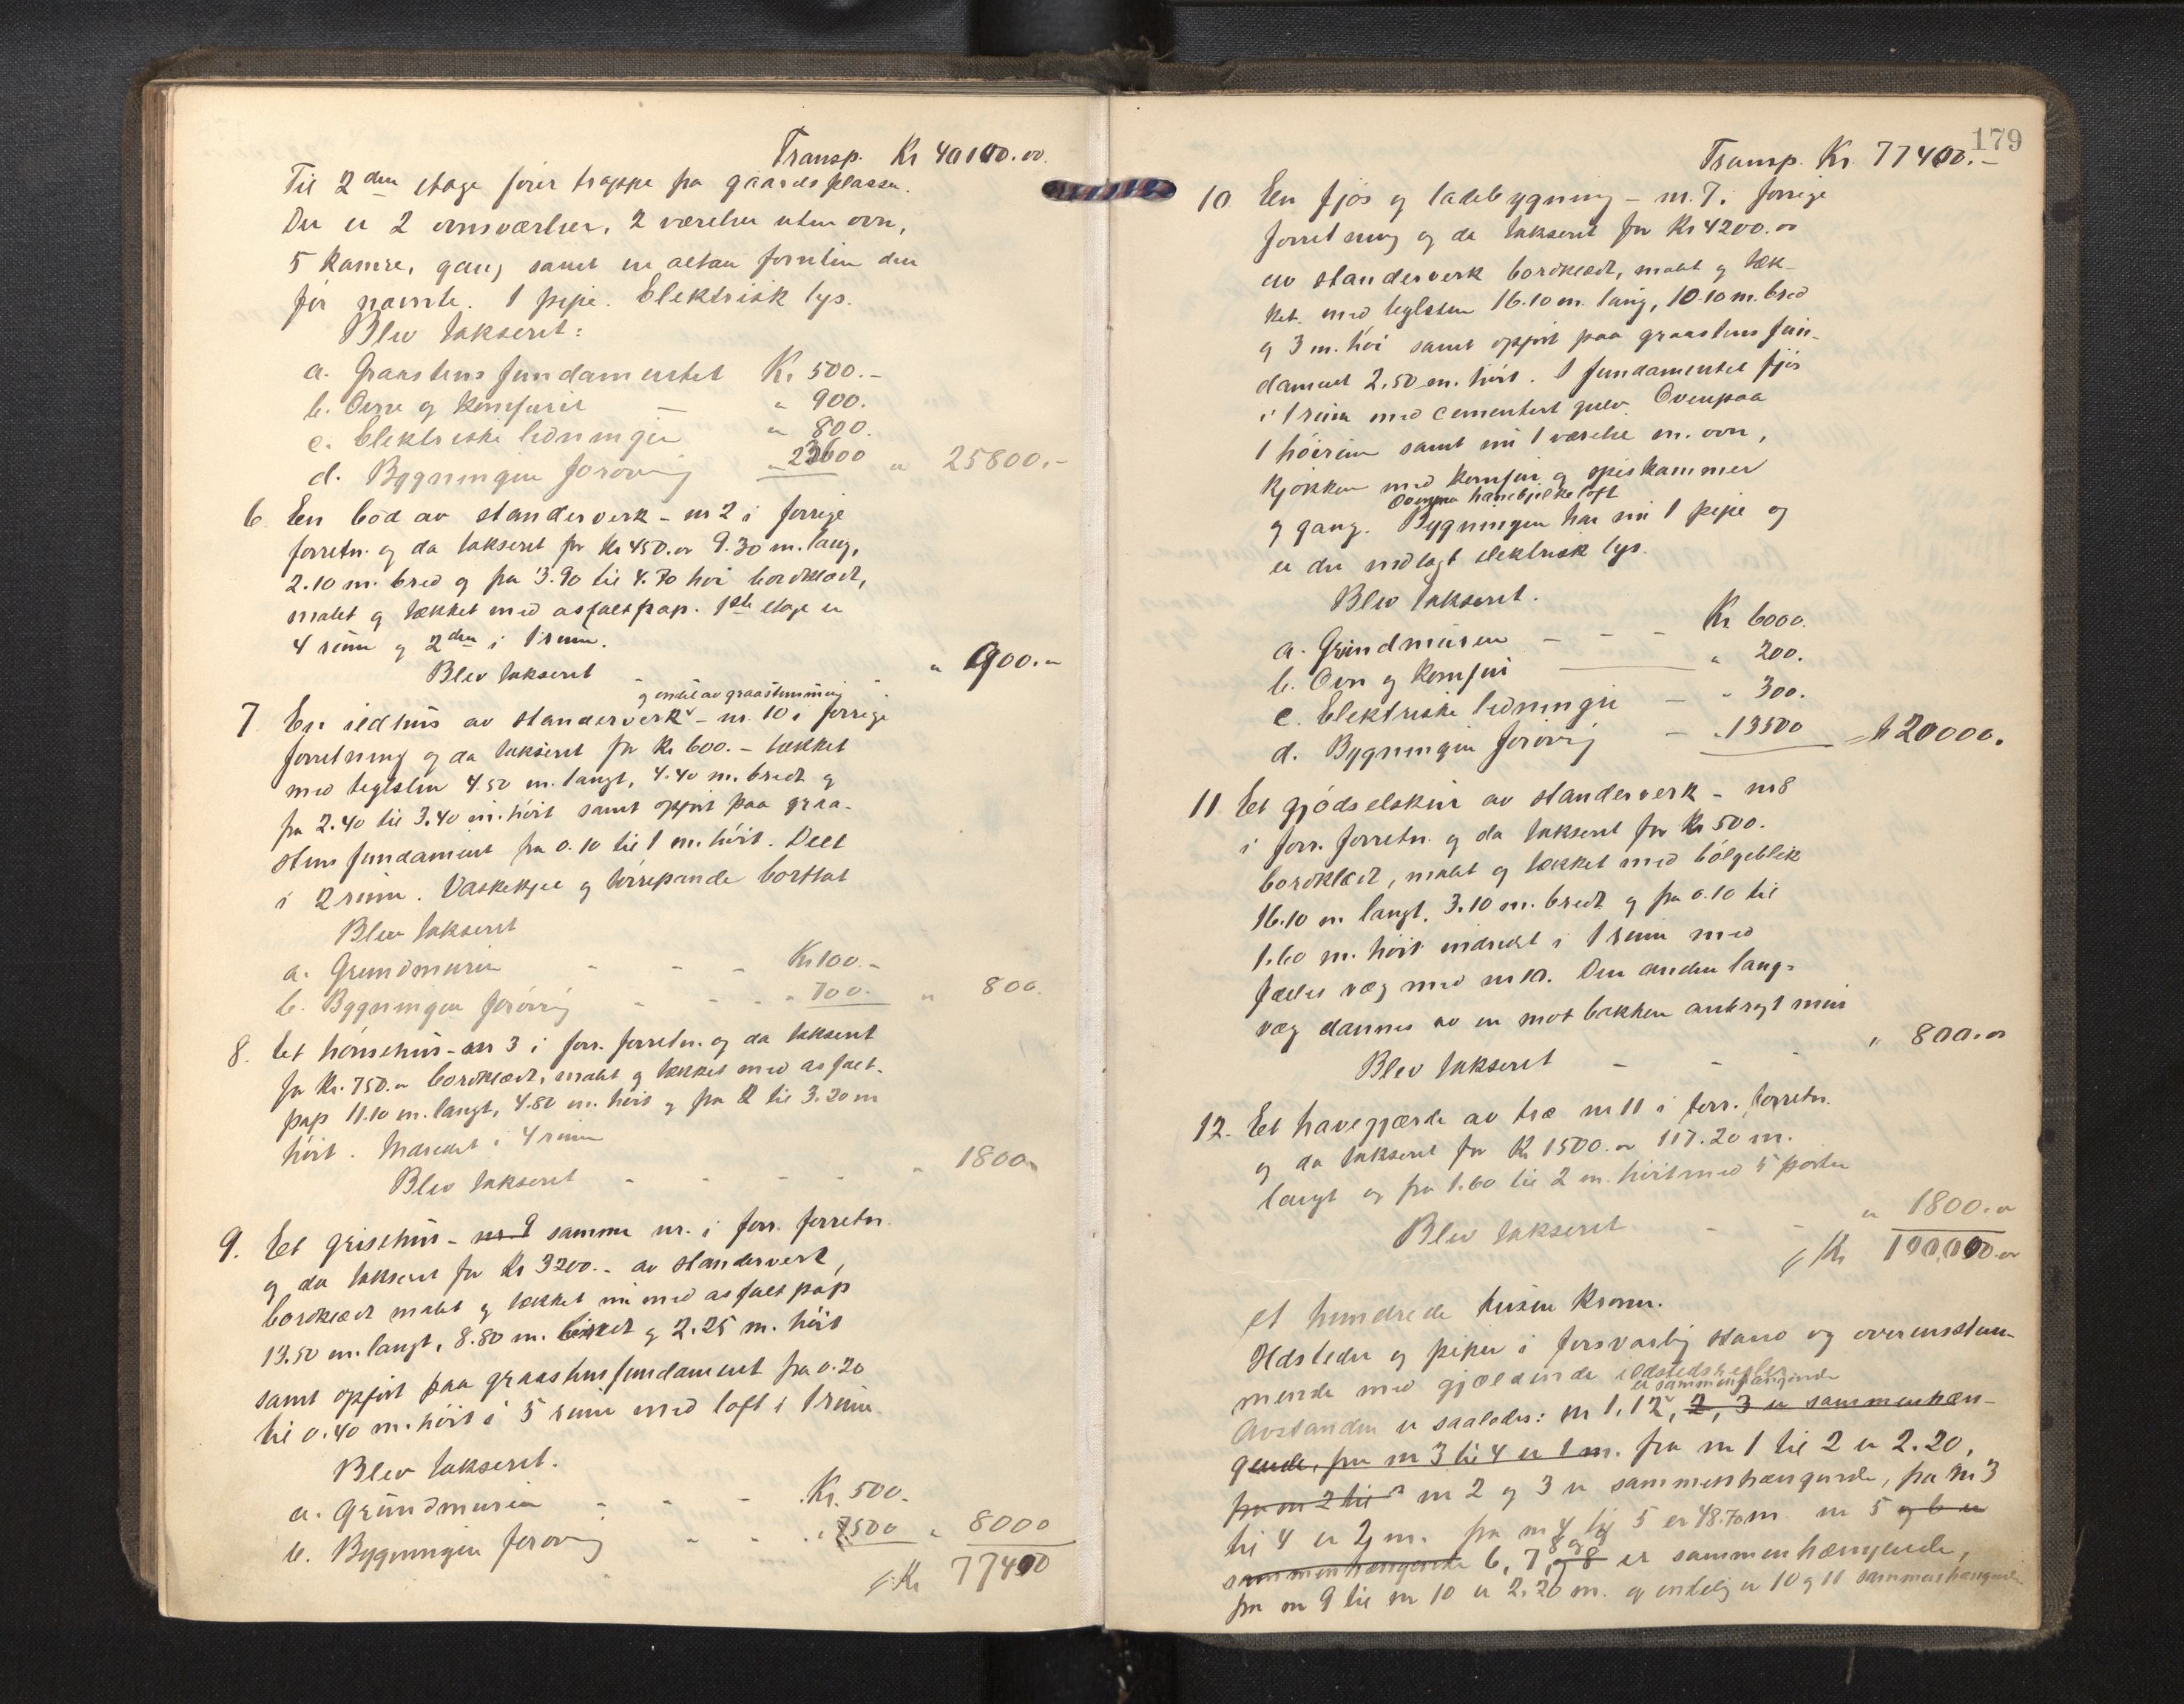 Transp. Kr 40100.00
Til 2den etage fører trappe fra gaardsplassen.
Der er 2 ovnsværelser, 2 værelser uten ovn,
5 kamre, gang samt en altan foruten den
før nævnte. 1 pipe. Elektrisk lys.
Blev takseret:
a. Graastens fundamentet Kr 500.-
b. Ovne og komfurer — " 900.
c. Elektriske ledninger " 800.
d. Bygningen forøvrig " 23600 " 25800.-
6. En bod av standerverk - nr 2 i forrige
forretn. og da takseret for Kr 450.00 9.30 m. lang,
2.10 m. bred og fra 3.90 til 4.70 høi bordklædt,
malet og tækket med asfaltpap. 1ste etage er
4 rum og 2den i 1 rum.
Blev takseret " 900.00
og endel av graastensmur
7. En ildhus av standerverk - nr. 10 i forrige
forretning og da takseret for Kr 600.- tækket
med teglsten 4.50 m. langt, 4.40 m. bredt og
fra 2.40 til 3.40 m. høit samt opført paa graa-
stens fundament fra 0.10 til 1 m. høit. Delt
i 2 rum. Vaskekjel og tørrepande borttat
Blev takseret
a. Grundmuren - - - Kr 100.-
b. Bygningen forøvrig - - - " 700.- " 800.
8. Et hønsehus - nr 3 i forr. forretn. og da takseret
for Kr. 750.00 bordklædt, malet og tækket med asfalt-
pap 11.10 m. langt, 4.80 m. høit og fra 2 til 3.20 m
høit. Indredet i 4 rum
Blev takseret - - - - " 1800.
9. Et grisehus - nr 9 samme nr. i forr. forretn.
og da takseret for Kr 3200.- av standerverk,
bordklædt malet og tækket nu med asfaltpap
13.50 m. langt, 8.80 m. bredt og 2.25 m. høit
samt opført paa graastensfundament fra 0.20
til 0.40 m. høit i 5 rum med loft i 1 rum
Blev takseret.
a. Grundmuren - - - Kr. 500.
b. Bygningen forøvrig - - " 7500 " 8000
Kr 77400
179
Transp. Kr. 77400.-
10 En fjøs og ladebygning - nr. 7 i forrige
forretning og da takseret for Kr 4200.00
av standerverk bordklædt, malet og tæk-
ket med teglsten 16.10 m. lang, 10.10 m. bred
og 3 m. høi samt opført paa graastens fun-
dament 2.50 m. høit. I fundamentet fjøs
i 1 rum med cementert gulv. Ovenpaa
1 høirum samt nu 1 værelse m. ovn,
kjøkken med komfur og spiskammer
Ovenpaa hanebjelkeloft
og gang. Bygningen har nu 1 pipe og
er der indlagt elektrisk lys.
Blev takseret.
a. Grundmuren - - - Kr. 6000.
b. Ovn og komfur — " 200.
c. Elektriske ledninger - " 300.
d. Bygningen forøvrig - " 13500 = " 20000.
11. Et gjødselskur av standerverk - nr 8
i forr. forretn. og da takseret for Kr 500.
bordklædt, malet og tækket med bølgeblik
16.10 m. langt, 3.10 m. bredt og fra 0.10 til
1.60 m. høit indredet i 1 rum med
fælles væg med nr 10. Den anden lang-
væg dannes av en mot bakken anbragt mur
Blev takseret - - - " 800.00
12. Et havegjærde av træ nr 11 i forr. forretn.
og da takseret for Kr 1500.00 117.20 m.
langt og fra 1.60 til 2 m. høit med 5 porter
Blev takseret - - " 1800.00
Kr 100,000.00
et hundrede tusen kroner.
Ildsteder og piper i forsvarlig stand og overensstem-
mende med gjældende ildstedsregler
er sammenhængende
Avstanden er saaledes: nr 1, 12, 2, 3 er sammenhæn-
gende, fra nr 3 til 4 er 1 m. fra nr 1 til 2 er 2.20,
fra nr 2 til nr 2 og 3 er sammenhængende, fra nr 3
til 4 er 2 m. fra nr 4 til 5 er 48.70 m nr 5 og 6 er
8 og 9
sammenhængende 6, 7, og 8 er sammenhængende,
fra nr 9 til nr 10 er 2.20 m. og endelig er 10 og 11 sammenhængende